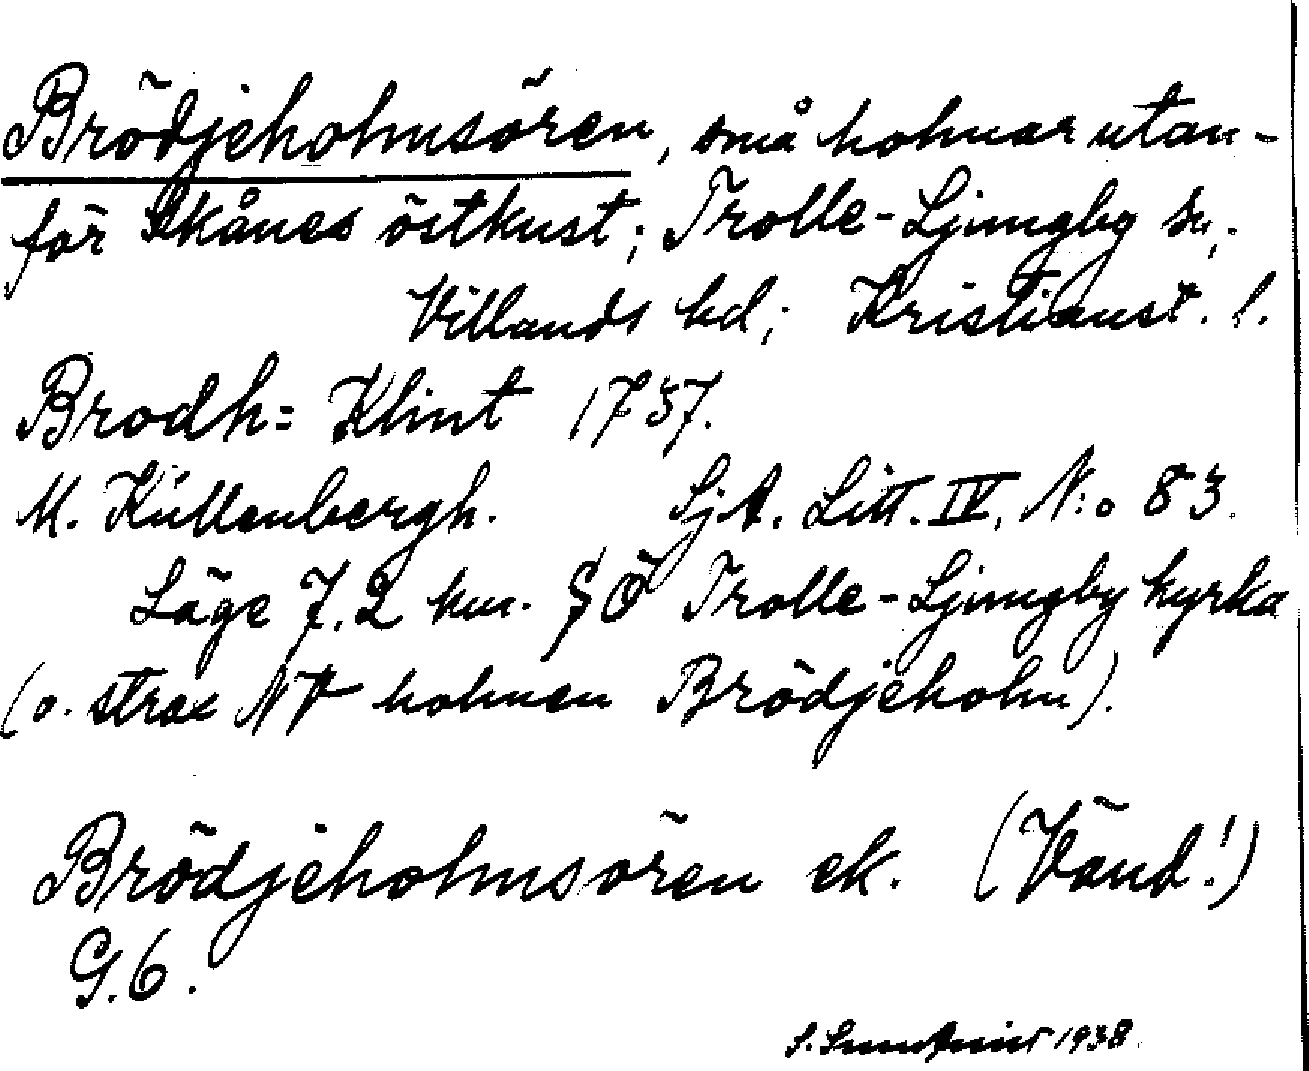 Brödjeholmsören, små holmar utan-
för Skånes östkust; Trolle-Ljungby sn,.
Villands hd; Kristianst. l.
Brodh= Klint 1737.
M. Küllenbergh. SjA. Litt. IV. N:o 83.
Läge 7.2 km. SÖ Trolle-Ljungby kyrka
(o. strax NV holmen Brödjeholm).
Brödjeholmsören ek. (Vänd!)
G.6.
S. 1938.